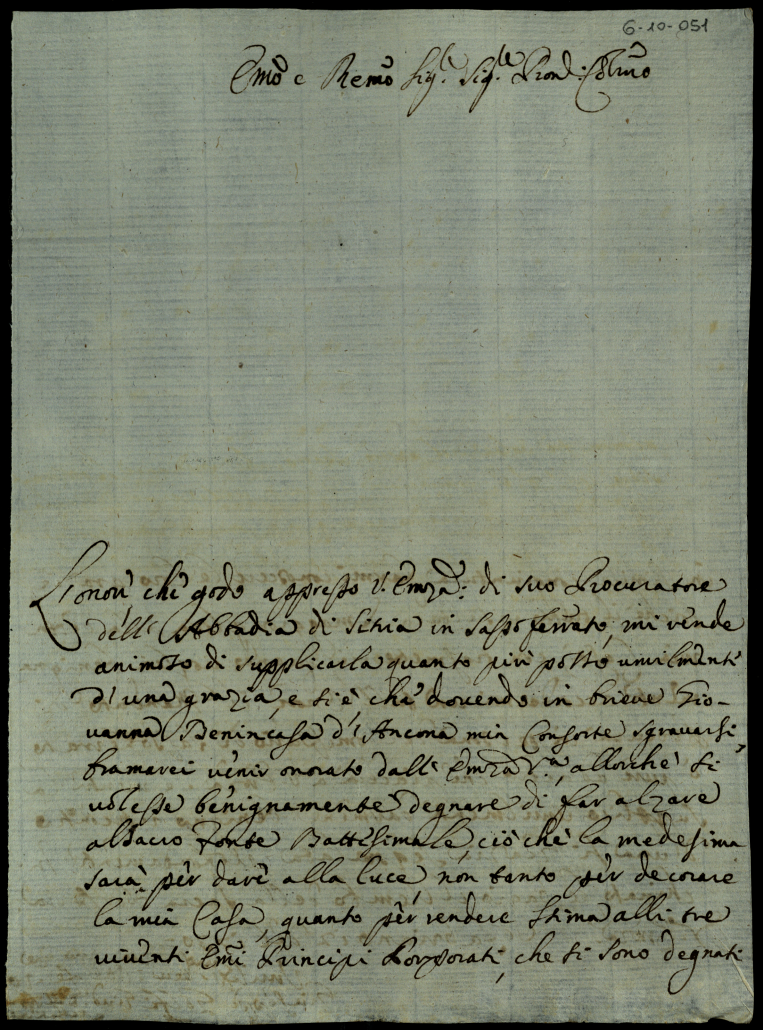 6-10-051
Emo e Remo Sig.r Sig.re Pron: Colmo
L'onor che godo appresso V. Emza: di suo Procuratore
dell'Abbadia di Sitria in Sassoferrato, mi rende
animoso di supplicarla quanto più posso umilmente
d'una grazia, e si è che dovendo in brieve Gio-
vanna Benincasa d'Ancona mia Consorte sgravarsi,
bramarei venir onorato dall'Emza V.ra, allorche si
volesse benignamente degnare di far alzare
al Sacro Fonte Battesimale, ciò che la medesima
sarà per dare alla luce, non tanto per decorare
la mia Casa, quanto per rendere stima alli tre
viventi Emi Principi Porporati, che si sono degnati